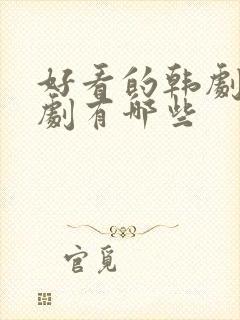 好看的韩劇
劇有哪些
官覓